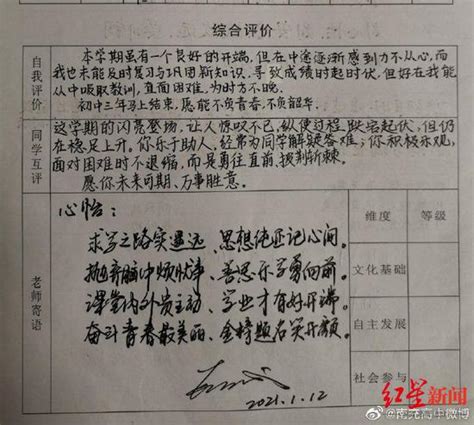 综合评价
自我评价
本学期虽有一个良好的开端,但在中途逐渐感到力不从心,而
我也未能及时复习与巩固新知识,导致成绩时起时伏,但好在我能
从中吸取教训,直面困难,为时方不晚。
初中三年马上结束,愿能不负青春,不负韶华。
同学互评
这学期的闪亮登场,让人惊叹不已,纵使过程跌宕起伏,但仍
在稳足上升。你乐于助人,经常为同学解疑答难;你积极乐观,
面对困难时不退缩,而是勇往直前,披荆斩棘。
愿你未来可期、万事胜意。
老师寄语
心怡:
求学之路实遥远、思想纯正记心间。
抛弃脑中烦忧事、善思乐学勇向前。
课堂内外贵主动、学业才有好开端。
奋斗青春最美丽、金榜题名笑开颜。
2021.1.12
维度
等级
文化基础
自主发展
社会参与
红星新闻
@南充高中微博